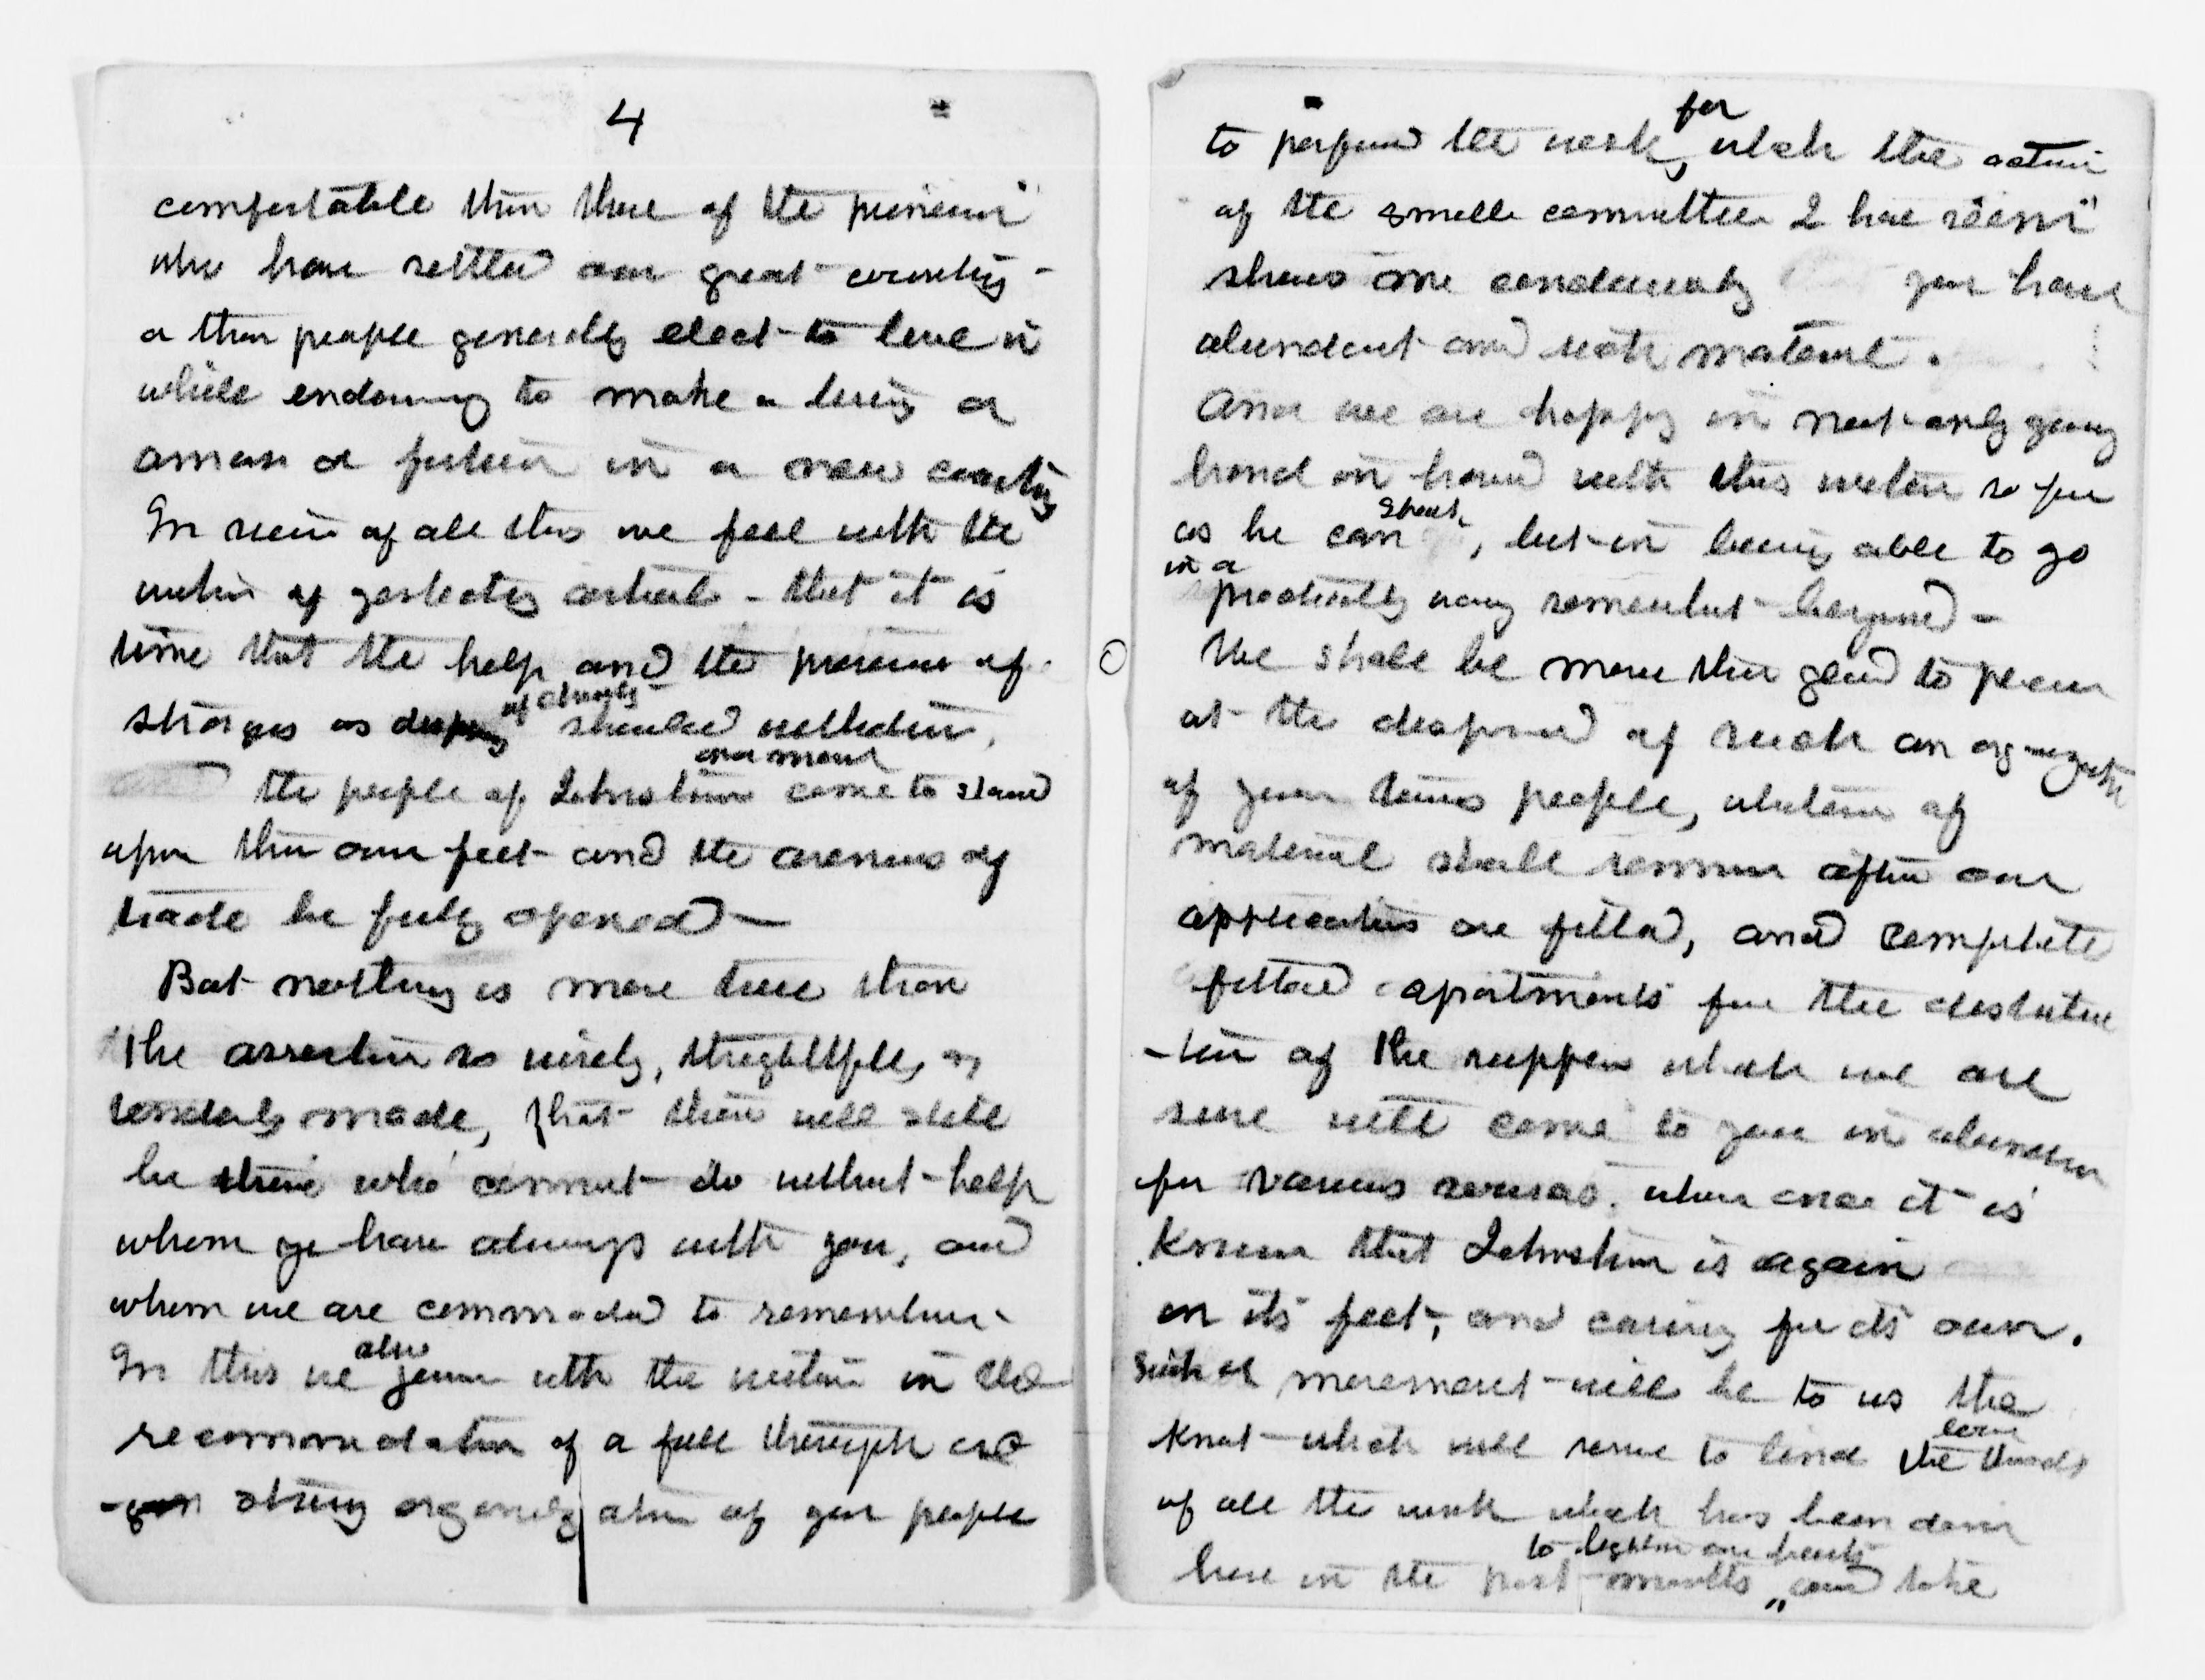 4
comfortable than those of the pioneers
who have settled our great country -
or than people generally elect to live in
while endeavoring to make a living or
amass a fortune in a new country
In view of all this we feel with the
writer of yesterdays article - that it is
time that the help and the presence of
strangers as dispensers of charity should withdraw,
the people of Johnstown once more come to stand
upon their own feet and the avenues of
trade be fully opened -
But nothing is more true than
the assertion so wisely, thoughtfully &
tenderly made, that there will still
be those who cannot do without help
whom ye have always with you, and
whom we are commanded to remember -
In this we also join with the writer in the
recommendation of a full thorough and
strong organization of your people
to perform the work, for which the action
of the smaller committees I have seen
shows me conclusively you have
abundant and rich material.
And we are happy in not only going
hand in hand with this writer so far
as he can speak, but in being able to go
in a practically way somewhat beyond -
We shall be more than glad to place
at the disposal of such an organization
of your towns people, whatever of
material shall remain after our
applications are filled, and complete
fitted apartments for the distribu
-tion of the supplies which we are
sure will come to you in abundance
for various sources, when once it is
known that Johnstown is again
on its feet, and caring for its own.
Such a movement will be to us the
knot which will serve to bind the loose threads
of all the work which has been done
here in the past months to lighten our hearts „ and take